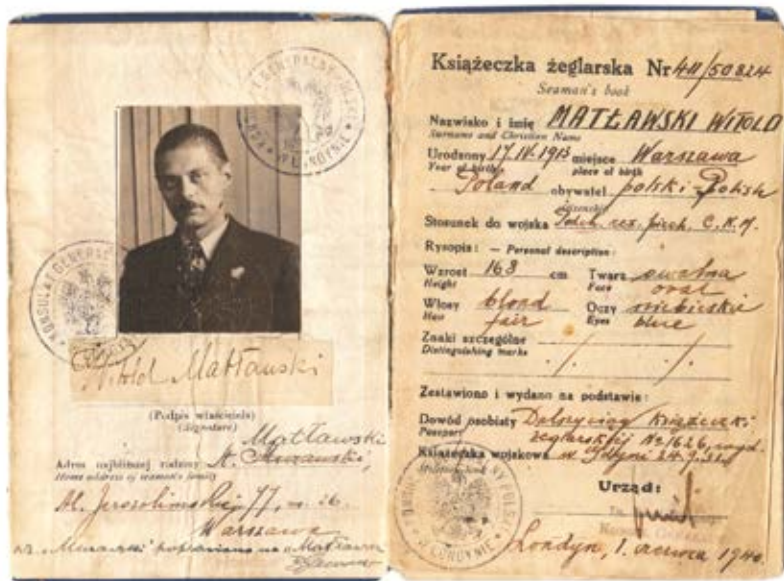 KONSULAT GENERALNY POLSKI
W LONDYNIE
KONSULAT GENERALNY
Witold Matławski
(Podpis właściciela)
(Signature)
Matławski
Adres najbliższej rodziny
Home address of seaman's family
Al. Jerozolimskiej 77, m. 26
Warszawa
poprawiono na „Matławski
Książeczka żeglarska Nr 411/50824
Seaman's book
Nazwisko i imię MATŁAWSKI WITOLD
Surname and Christian Name
Urodzony 17.IV.1913 miejsce Warszawa
Year of birth place of birth
Poland obywatel polski-Polish
citizenship
Stosunek do wojska
Rysopis: — Personal description:
Wzrost 168 cm Twarz owalna
Height Face oval
Włosy blond Oczy niebieskie
Hair fair Eyes blue
Znaki szczególne
Distinguishing marks
Zestawiono i wydano na podstawie:
Dowód osobisty Dotychczas. książeczki
Passport żeglarskiej No 1626, wyd.
Książeczka wojskowa w Gdyni 24.9.32
Urząd:
W LONDYNIE
Londyn, 1. czerwca 1940